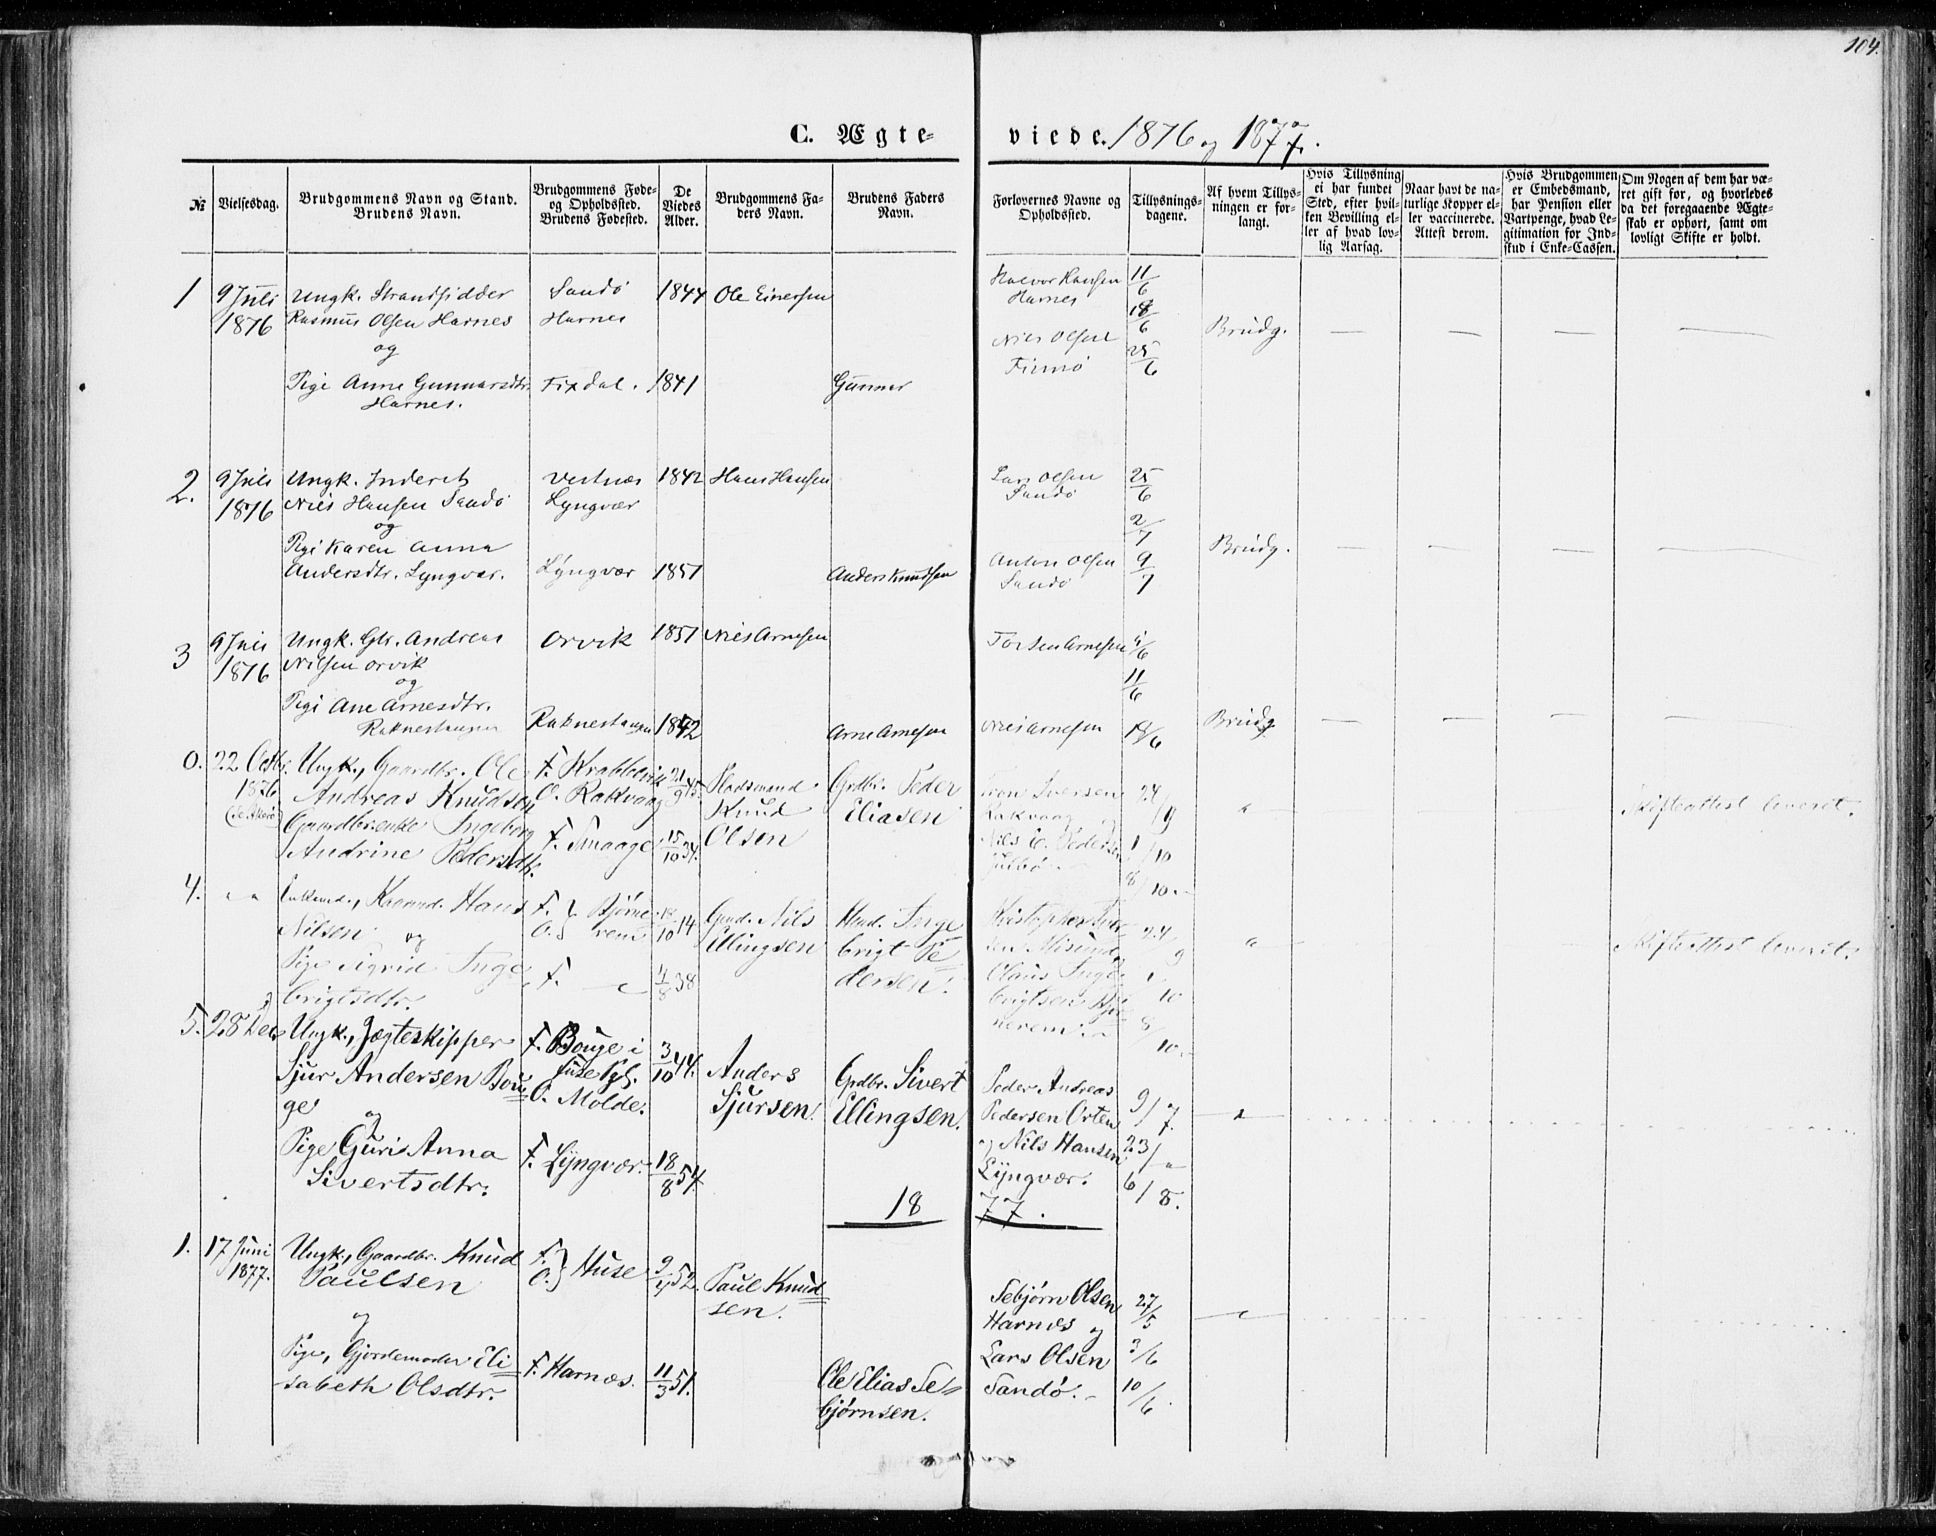 104.
C. Ægte= viede. 1876 og 1877.
№
Vielsesdag.
Brudgommens Navn og Stand.
Brudens Navn.
Brudgommens Føde=
og Opholdssted.
Brudens Fødested.
De
Viedes
Alder.
Brudgommens Fa=
ders Navn.
Brudens Faders
Navn.
Forlovernes Navne og
Opholdssted.
Tillysnings=
dagene.
Af hvem Tillys=
ningen er for=
langt.
Hvis Tillysning
ei har fundet
Sted, efter hvil=
ken Bevilling el=
ler af hvad lov=
lig Aarsag.
Naar havt de na=
turlige Kopper el=
ler vaccinerede.
Attest derom.
Hvis Brudgommen
er Embedsmand,
har Pension eller
Vartpenge, hvad Le=
gitimation for Ind=
skud i Enke=Cassen.
Om Nogen af dem har væ=
ret gift før, og hvorledes
da det foregaaende Ægte=
skab er ophørt, samt om
lovligt Skifte er holdt.
1
9 Juli
1876
Ungk. Strandsidder
Rasmus Olsen Harnes
og
Pige Anne Gunnarsdtr.
Harnes.
Sandö
Harnes
Fixdal.
1844
1841
Ole Einersen
Gunner
Halvor Hansen
Harnes
Nils Olsen
Finnö
11/6
18/6
25/6
Brudg.
2.
9 Juli
1876
Ungk. Inderst
Nils Hansen Sandö
og
Pige Karen Anna
Andersdtr. Lyngvær.
Vestnæs
Lyngvær
Lyngvær
1842
1851
Hans Hansen
Anders Knudsen
Lars Olsen
Sandö
Anton Olsen
Sandö
25/6
2/7
9/7
Brudg.
3
9 Juli
1876
Ungk. Gbr. Andreas
Nilsen Orvik
og
Pige Ane Arnesdtr.
Raknestangen
Orvik
Raknestangen
1851
1842
Nils Arnesen
Arne Arnesen
Torsen Arnesen
Nils Arnesen
4/6
11/6
18/6
Brudg.
0.
22 Octbr.
1876
Ungk., Gaardbr. Ole
Andreas Knudsen
Gaardbr.enke Ingeborg
Andrine Pedersdtr.
F. Krabbevik
O. Rakvaag
F. Smaage
21/9 45.
15/10 34.
Pladsmand
Knud
Olsen
Grdbr. Peder
Eliasen
Iversen
Rakvaag og
Nils E. Pedersen
Julbö.
24/9
1/10
8/10.
"
Skifteattest leveret.
4.
" "
Enkemd., Kaarmd. Hans
Nilsen og
Pige Sigrid Inge
brigtsdtr.
F. } Bjørne
O. } rem
F. "
18/10 14
4/8 38
Gmd. Nils
Ellingsen
Kmd. Inge
brigt Pe
dersen.
Kristopher Iver
sen Misund,
Claus Inge
brigtsen Bjø
rnerem.
24/9
1/10
8/10.
"
Skifteattest leveret.
5.
28 Dec.
Ungk., Jægteskipper
Sjur Andersen Bou
ge
og
Pige Guri Anna
Sivertsdtr.
F. Bouge i
Fuse Pgl.
O. Molde.
F. Lyngvær.
3/10 44.
18/8 54.
Anders
Sjursen.
Grdbr. Sivert
Ellingsen.
Peder Andreas
Pedersen Orten
og Nils Hansen
Lyngvær.
9/7.
23/"
6/8.
"
1877.
1.
17 Juni
1877.
Ungk., Gaardbr. Knud
Paulsen
og
Pige, Gjordemoder Eli
sabeth Olsdtr.
F. } Huse
O. }
F. Harnæs.
52.
11/3 51.
Paul Knud
sen.
Ole Elias Se=
bjørnsen.
Sebjørn Olsen
Harnæs og
Lars Olsen
Sandö.
27/5
3/6
10/6
"